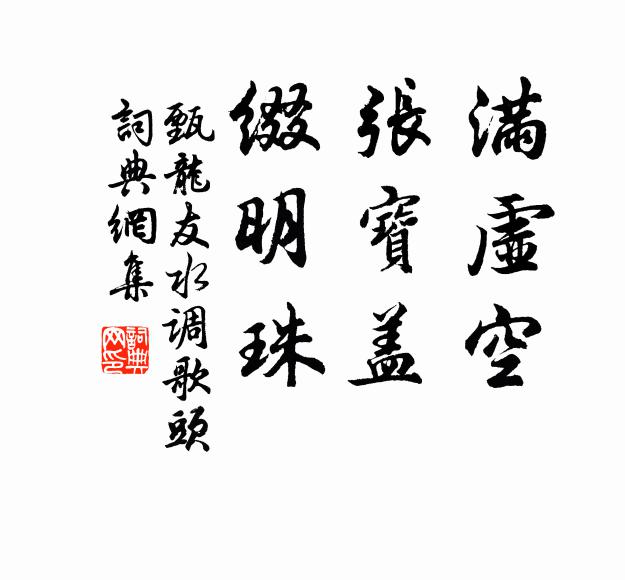 滿虛空
張寶蓋
綴明珠
甄龍友水调歌頭
詞典網集
詞典
网印